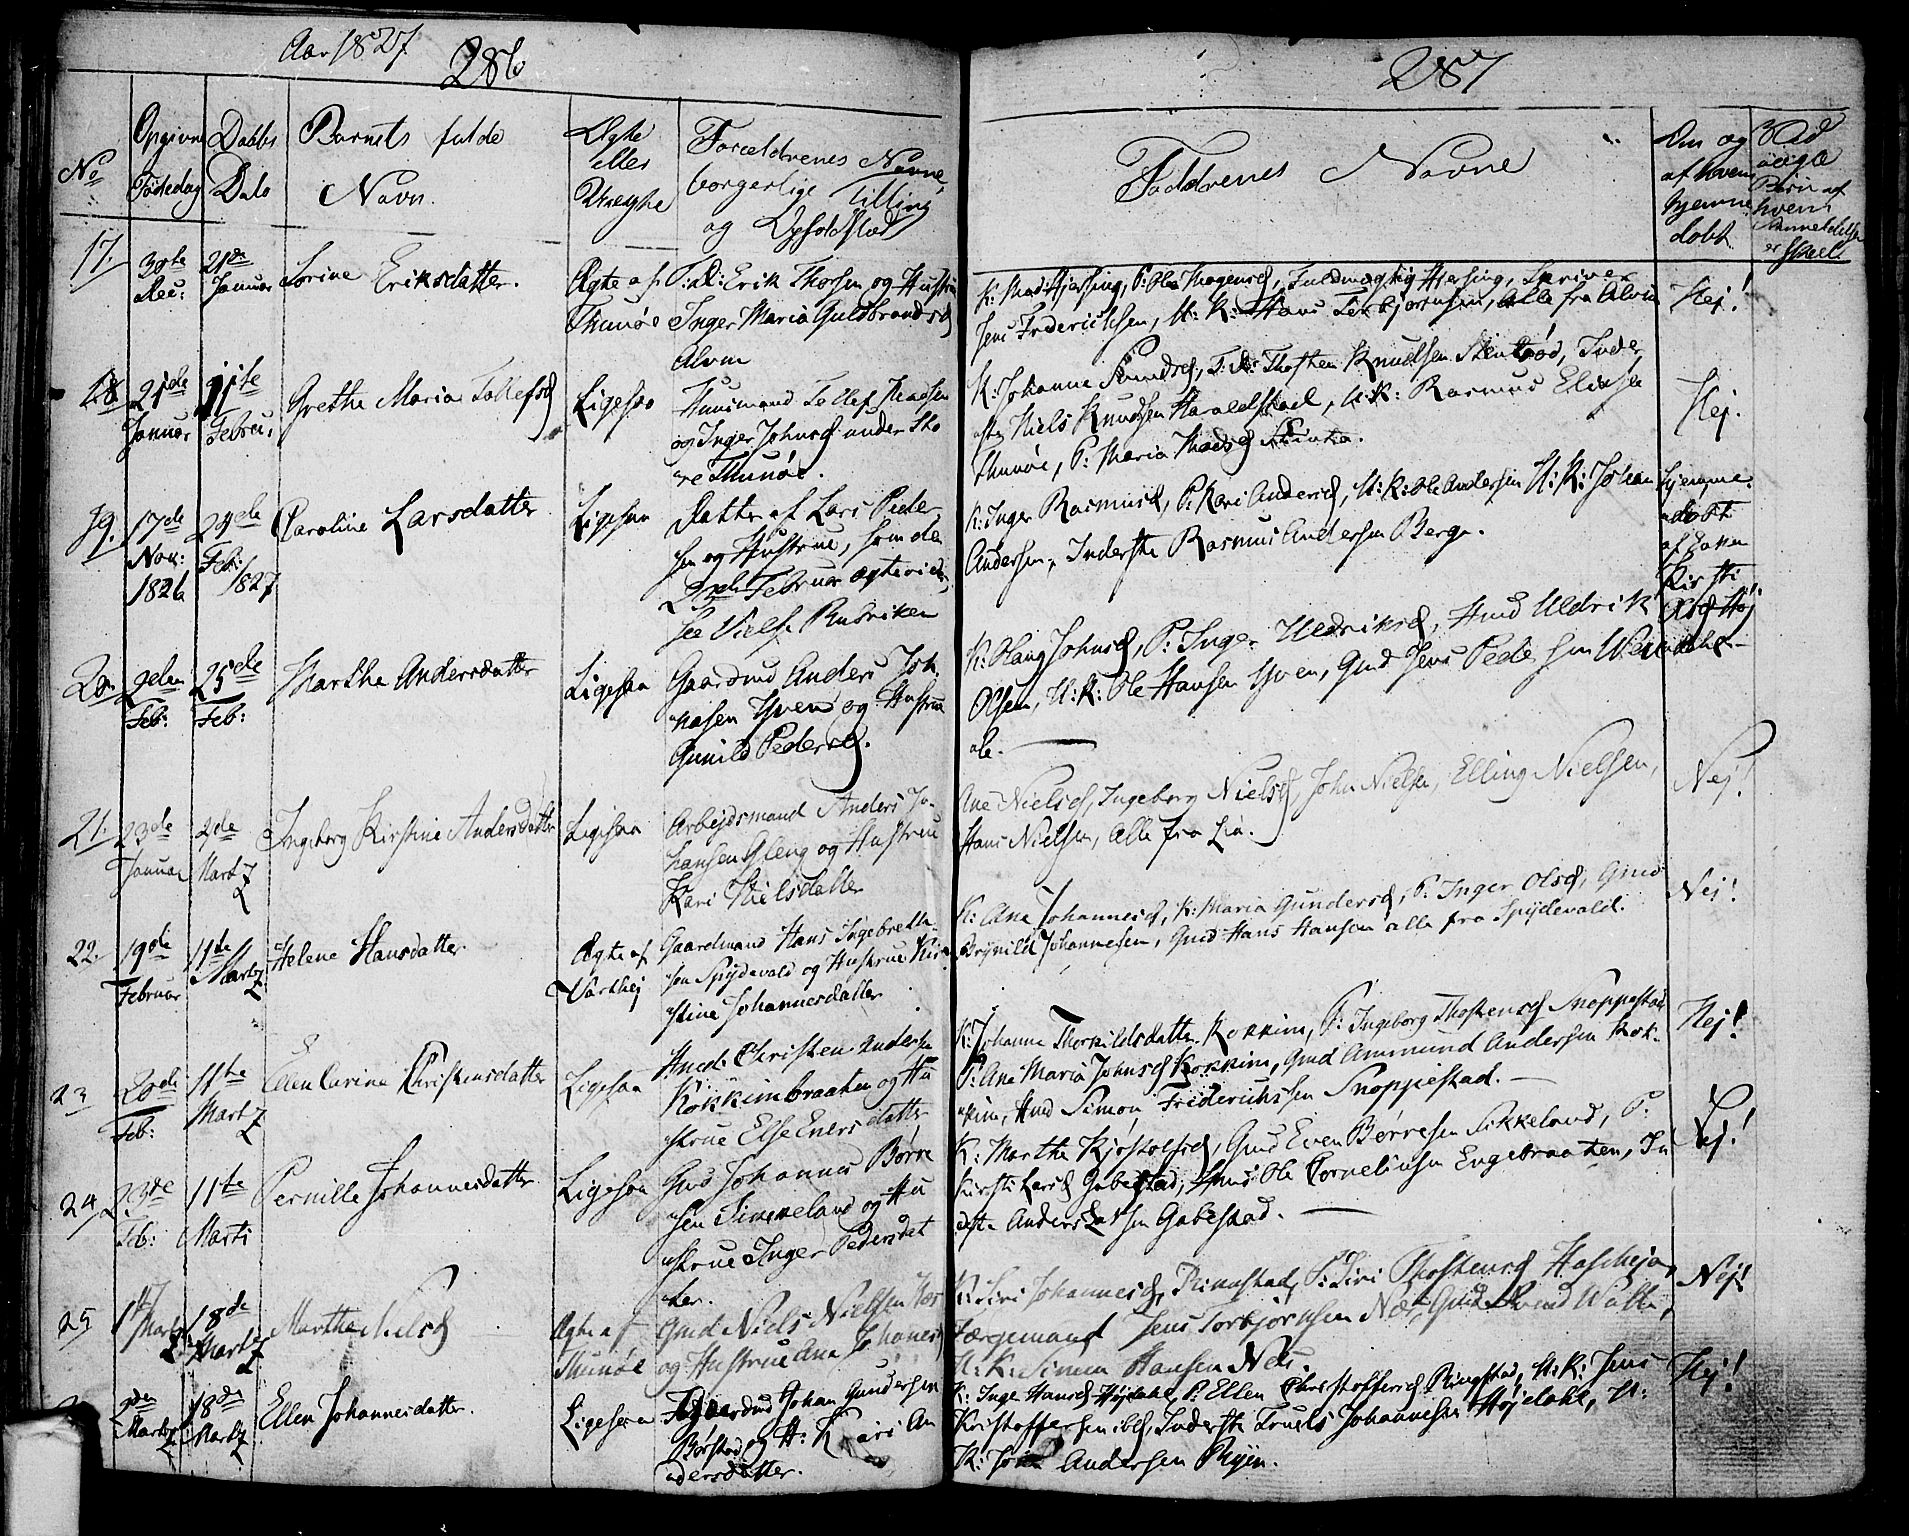 Aar 1827.
286
No
Opgivne
Fødedag
Daabs
Dato
Barnets fulde
Navn.
Ægte
eller
Uægte
Forældrenes Navne,
borgerlige Stilling
og Opholdsted
17.
30te
Dec:
21de
Januar
Sorine Eriksdatter.
Ægte af
Thunøe
Erik Thorsen og Hustru
Inger Maria Guldbrandsd
Alvim
18.
21de
Januar
11te
Februar
Grethe Maria Tollefsd
Ligesaa
Huusmand Tollef
og Inger Johnsd under Sto
re Thunøe.
19.
17de
Nov:
1826
24de
Feb:
1827
Caroline Larsdatter
Ligesaa
Datter af Lars Peder
sen og Hustrue, som den
Februar ægteviede,
see Vielse Rubriken
20.
2den
Feb:
25de
Feb:
Marthe Andersdatter
Ligesaa
Gaardmd Anders Joh
nsen Hven og Hustrue
Gunild Pedersd.
21.
23de
Januar
2de
Martz
Ingeborg Kirstine Andersdatter
Ligesaa
Arbejdsmand Anders Jo-
hansen Gleng og Hustrue
Kari Nielsdatter
22.
19de
Februar
11te
Martz
Helene Hansdatter
Ægte af
Varthej
Gaardmand Hans Ingebreth-
sen Spydevold og Hustrue Kir
stine Johannesdatter
23
20de
Feb:
11te
Martz
Ellen Carine Christensdatter
Ligesaa
Hmd: Christen Andersen
Kokkimbraaten og Hu
strue Else Enersdatter
24
23de
Feb:
11te
Marti
Pernille Johannesdatter
Ligesaa
Gmd Johannes Børre
sen Sikkeland og Hu
strue Inger Pedersdat
ter.
25
1te
Martz
18de
Martz
Marthe Nielsd
Ægte af
Thunøe
Gmd Niels Nielsen Næs
og Hustrue Ane Johannesd
Martz
18de
Martz
Ellen Johannesdatter.
Ligesaa
Gaardmd Johan Gundersen
Børstad og H: Kari An
dersdatter.
287
Faddrenes Navne
Om og
af hvem
hjemme
døbt
Ved
uægte
Børn af
hvem
Anmeldelsen
er skeet.
Jens Frederichsen, U: K: Hans Torbjørnsen, Alle fra Alvim
Nej!
K: Johanne
Niels Knudsen Haraldstad, U: K: Rasmus Eliasen
Thunøe, P: Maria Madsd
Nej.
K: Inger Rasmusd, P: Kari Andersd, U: K: Ole Andersen U: K: Johan
Andersen, Inderste Rasmus Andersen Berge.
Hjemme
døbt
af
Kirsti
K: Johnsd, P: Inger Uldriksd, Hmd Uldrik
Olsen, U: K: Ole Hansen Hven, Gmd Jens Pedersen
Ane Nielsd, Ingeborg Nielsd, John Nielsen, Elling Nielsen,
Hans Nielsen, Alle fra Lia.
Nej!
K: Ane Johannesd, K: Maria Gundersd, P: Inger Olsd, Gmd
Brynild Johannesen, Gmd Hans Hansen alle fra Spydevold.
Nej!
K: Johanne Thorkildsdatter Kokkim, P: Ingeborg Thostensd Snoppestad
P: Ane Maria Johnsd Kokkim, Gmd Ammund Andersen Kok-
kim, Hmd Simon Frederichsen Snoppestad.
Nej!
K: Marthe Kjøstolsd, Gmd Even Børresen Sikkeland, P:
Kirsti Larsd Gabestad, Hmd: Ole Cornelinsen Engebraaten, In
derste Anders Larsen Gabestad.
Nej!
K: Siri Johannesd, Ringstad, P: Siri Thostensd
Færgemand Jens Torbjørnsen Næs, Gmd
U: K: Simen Hansen Næs.
Nej!
K: Inge Hansd Højdahl, P: Ellen Christoffersd Ringstad, U: K: Jens
Kristoffersen ibd, Inderste Truels Johannesen Højdahl, U:
K: Andersen Ryen.
Nej!